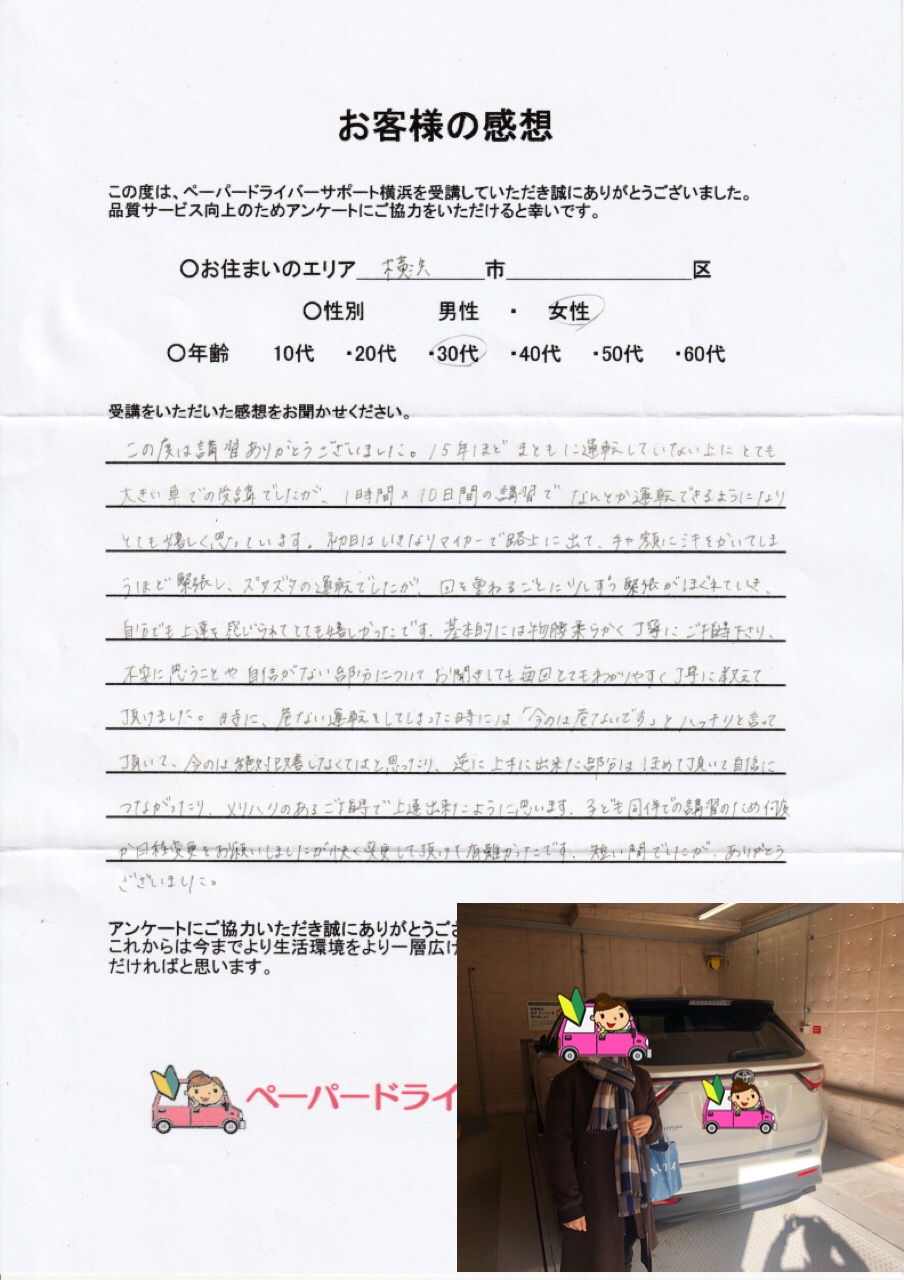 お客様の感想
この度は、ペーパードライバーサポート横浜を受講していただき誠にありがとうございました。
品質サービス向上のためアンケートにご協力をいただけると幸いです。
〇お住まいのエリア 横浜 市 区
〇性別 男性 ・ 女性
〇年齢 10代 ・20代 ・30代 ・40代 ・50代 ・60代
受講をいただいた感想をお聞かせください。
この度は講習ありがとうございました。15年ほどまともに運転していない上にとても
大きい車での受講でしたが、1時間×10日間の講習でなんとか運転できるようになり
とても嬉しく思っています。初日はいきなりマイカーで路上に出て、手や額に汗をかいてしま
うほど緊張し、ズタズタの運転でしたが、回を重ねるごとに少しずつ緊張がほぐれていき、
自分でも上達を感じられてとても嬉しかったです。基本的には物腰柔らかく丁寧にご指導下さり、
不安に思うことや自信がない部分についてお聞きしても毎回とてもわかりやすく丁寧に教えて
頂けました。時に、危ない運転をしてしまった時には「今のは危ないです」とハッキリと言って
頂いて、今のは絶対改善しなくてはと思ったり、逆に上手に出来た部分はほめて頂いて自信に
つながったり、メリハリのあるご指導で上達出来たように思います。子ども同伴での講習のため何度
か日程変更をお願いしましたが快く変更して頂けて有難かったです。短い間でしたが、ありがとう
ございました。
アンケートにご協力いただき誠にありがとうござ
これからは今までより生活環境をより一層広げ
だければと思います。
ペーパードライ